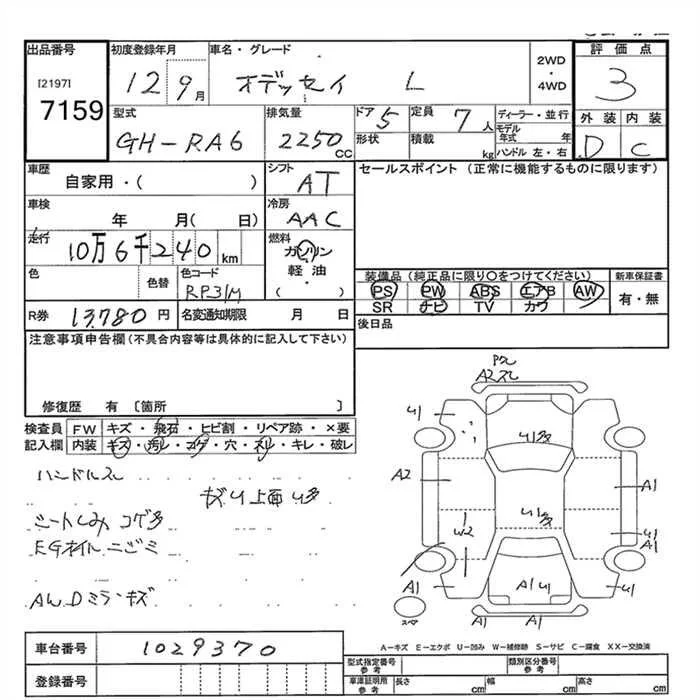 出品番号
[2197]
7159
初度登録年月
12 9月
車名・グレード
オデッセイ L
2WD
・
4WD
評価点
3
外装 内装
D C
型式
GH-RA6
排気量
2250 CC
ドア 5
形状
定員 7人
積載 kg
ディーラー・並行
モデル年式 年
ハンドル 左・右
車歴
自家用・( )
シフト
AT
セールスポイント (正常に機能するものに限ります)
車検
年 月(日)
冷房
AAC
走行
10万6千240 km
燃料
ガソリン
軽油
( ・
色
色替
色コード
RP31M
装備品(純正品に限り○をつけてください)
PS PW ABS エアB AW
SR ナビ TV カワ
新車保証書
有・無
R券 13,780 円
名変通知期限 月 日
後日品
注意事項申告欄(不具合内容等は具体的に記入して下さい)
修復歴 有 〔箇所 〕
検査員 FW キズ・飛石・ヒビ割・リペア跡・×要
記入欄 内装 キズ・汚レ・コゲ・穴・スリ・キレ・破レ
ハンドルスレ
シートしみ コゲ多
EGオイルニジミ
AW,Dミラーキズ
A2
U1
U1多
U1
A2
A1
U1多
W2
U1
A1
A1
A1 U1
U1
A1 A1
スペア
A-キズ E-エクボ U-凹み W-補修跡 S-サビ C-腐食 XX-交換済
車台番号 1029370
登録番号
型式指定番号
参考
類別区分番号
参考
車庫証明用
参考
長さ cm 幅 cm 高さ cm